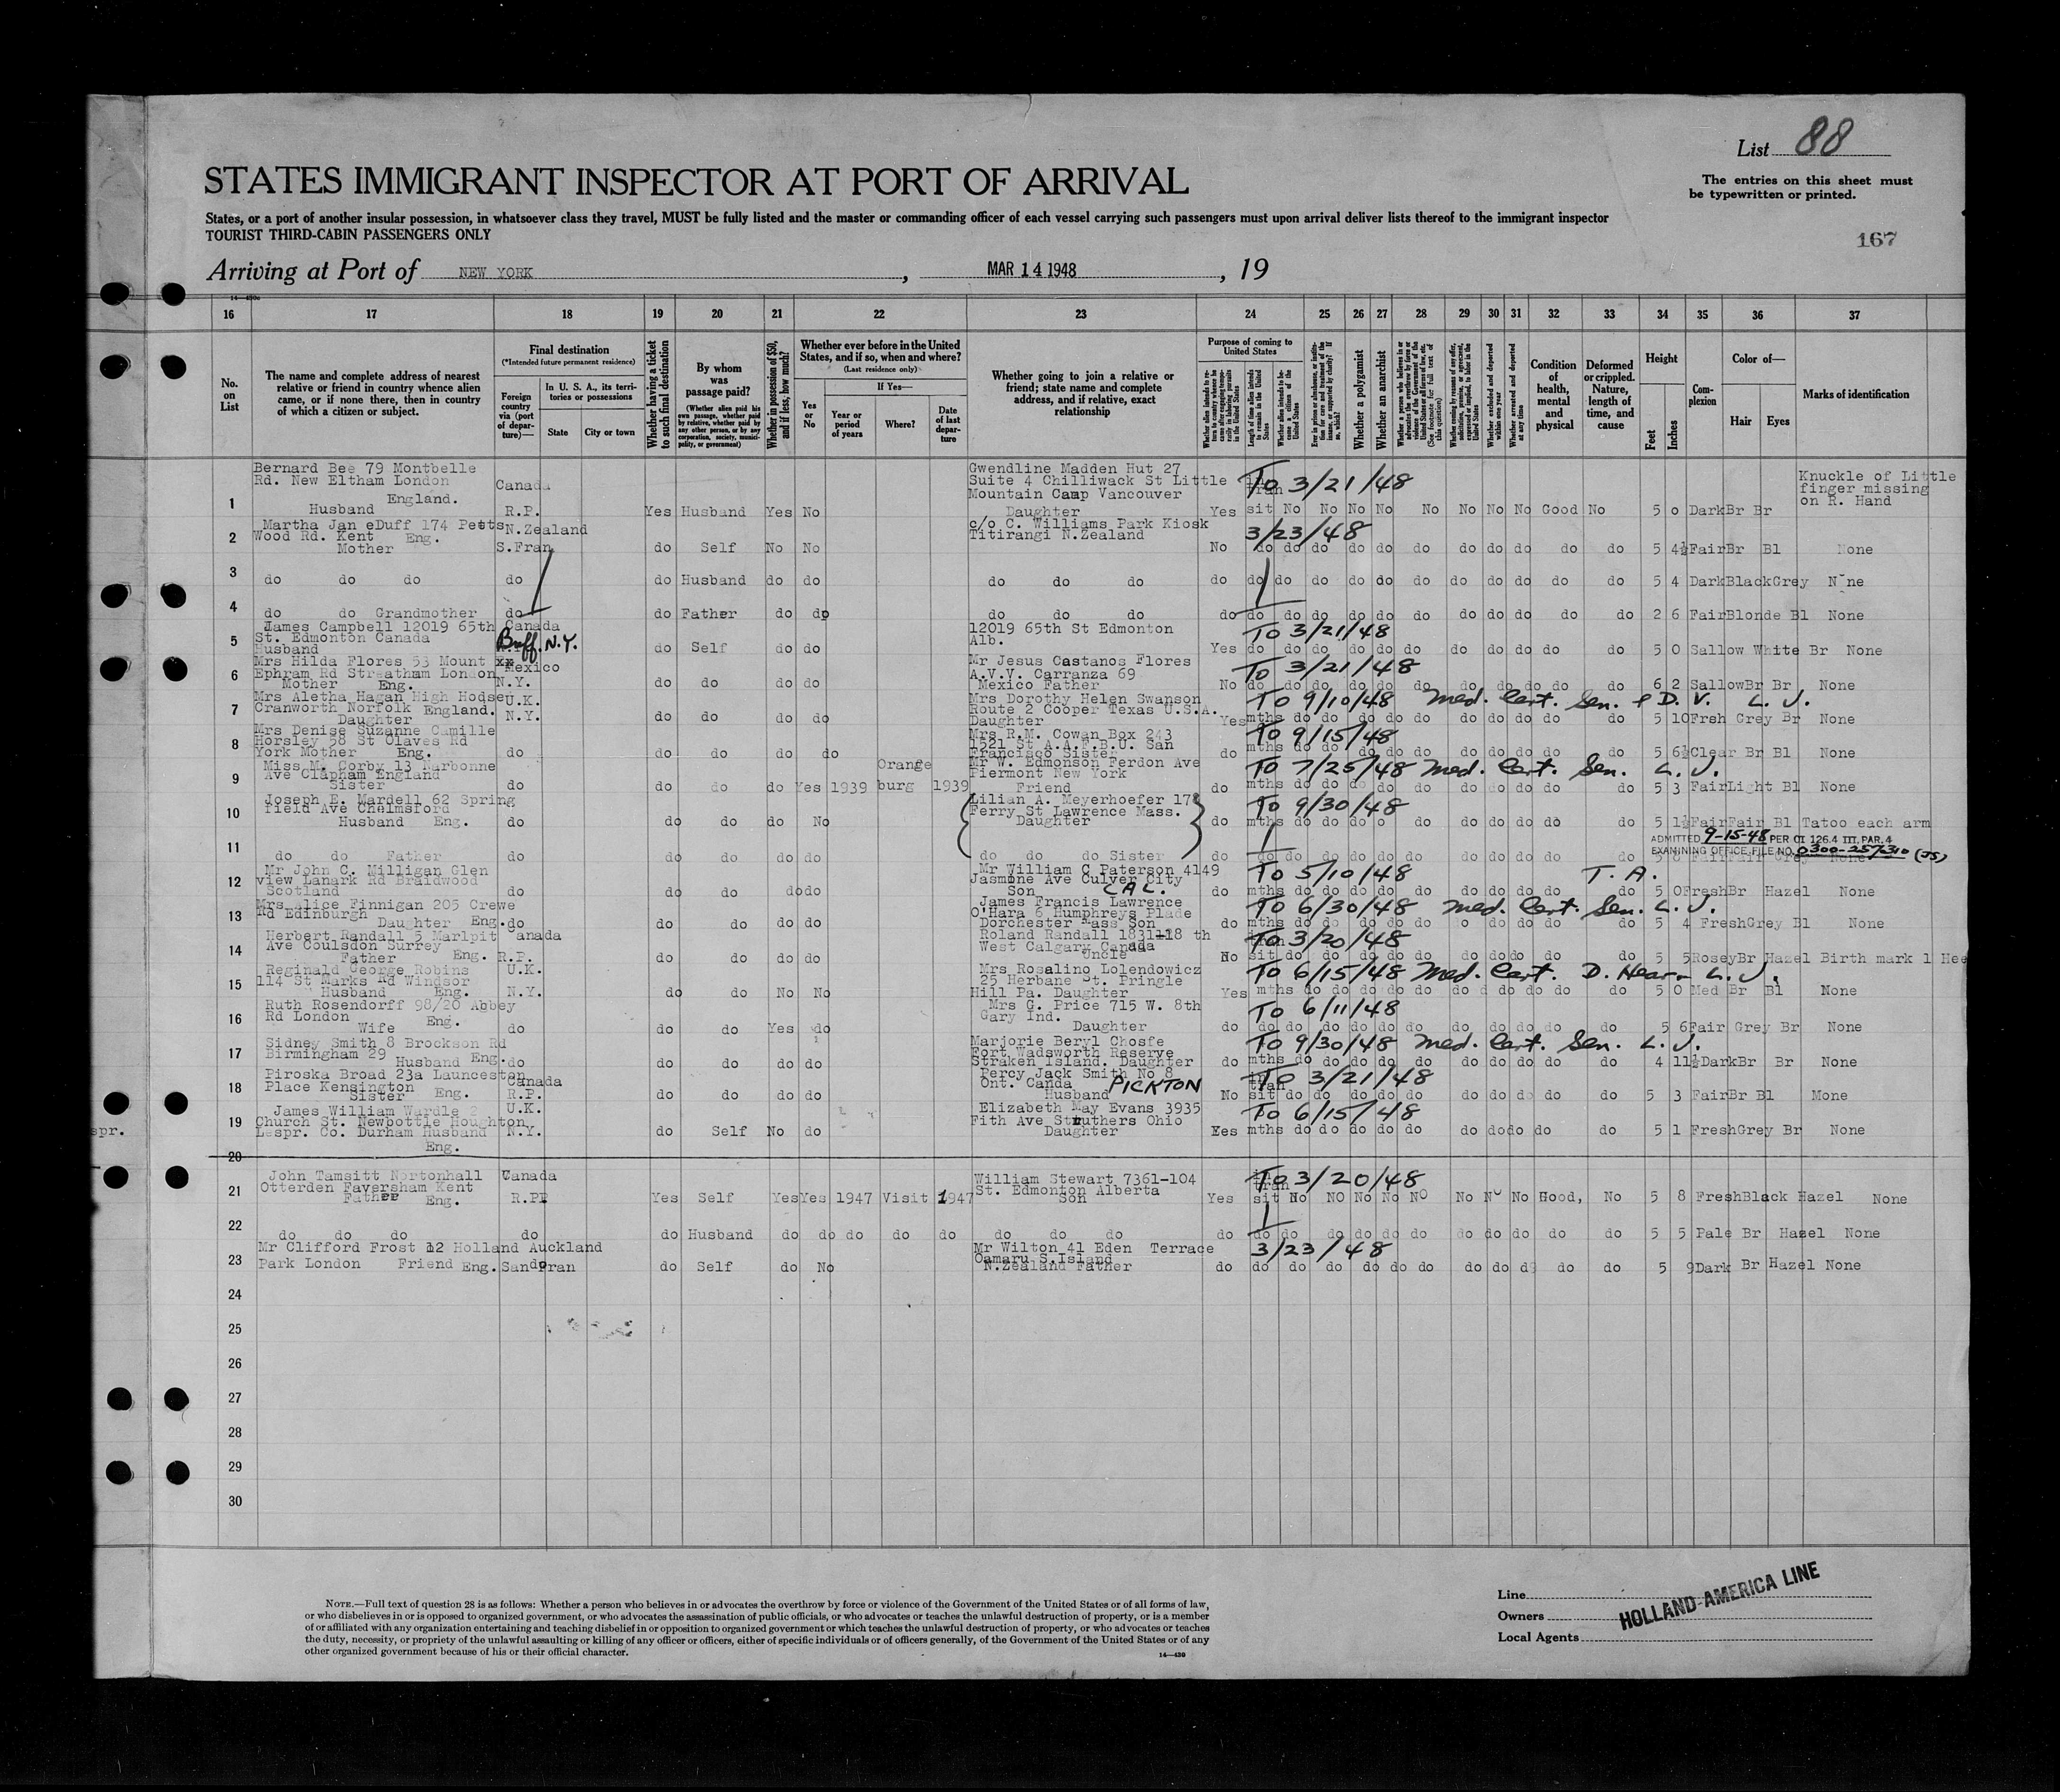 List 88
STATES IMMIGRANT INSPECTOR AT PORT OF ARRIVAL
The entries on this sheet must
be typewritten or printed.
States, or a port of another insular possession, in whatsoever class they travel, MUST be fully listed and the master or commanding officer of each vessel carrying such passengers must upon arrival deliver lists thereof to the immigrant inspector
TOURIST THIRD-CABIN PASSENGERS ONLY
167
Arriving at Port of NEW YORK, MAR 14 1948, 19
16 17 18 19 20 21 22 23 24 25 26 27 28 29 30 31 32 33 34 35 36 37
No. on List
The name and complete address of nearest relative or friend in country whence alien came, or if none there, then in country of which a citizen or subject.
Final destination
(*Intended future permanent residence)
Foreign country via (port of departure)—
In U. S. A., its territories or possessions
State City or town
Whether having a ticket to such final destination
By whom was passage paid?
(Whether alien paid his own passage, whether paid by relative, whether paid by any other person, or by any corporation, society, municipality, or government)
Whether in possession of $50, and if less, how much?
Whether ever before in the United States, and if so, when and where?
(Last residence only)
Yes or No
If Yes—
Year or period of years Where? Date of last departure
Whether going to join a relative or friend; state name and complete address, and if relative, exact relationship
Purpose of coming to United States
Whether a polygamist
Whether an anarchist
Condition of health, mental and physical
Deformed or crippled. Nature, length of time, and cause
Height
Feet Inches
Complexion
Color of—
Hair Eyes
Marks of identification
1 Bernard Bee 79 Montbelle Rd. New Eltham London England. Husband Canada R.P. Yes Husband Yes No Gwendline Madden Hut 27 Suite 4 Chilliwack St Little Mountain Camp Vancouver Daughter Yes transit To 3/21/48 No No No No No No No No Good No 5 0 Dark Br Br Knuckle of Little finger missing on R. Hand
2 Martha Jane Duff 174 Petts Wood Rd. Kent Eng. Mother N.Zealand S.Fran do Self No No c/o C. Williams Park Kiosk Titirangi N.Zealand No 3/23/48 do do do do do do do do do do do 5 4½ Fair Br Bl None
3 do do do do do Husband do do do do do do do do do do do do do do do do do 5 4 Dark Black Grey None
4 do do Grandmother do do Father do do do do do do do do do do do do do do do do do 2 6 Fair Blonde Bl None
5 James Campbell 12019 65th St. Edmonton Canada Husband Canada Buff. N.Y. do Self do do 12019 65th St Edmonton Alb. Yes To 3/21/48 do do do do do do do do do do do 5 0 Sallow White Br None
6 Mrs Hilda Flores 53 Mount Ephram Rd Streatham London Mother Eng. xx Mexico N.Y. do do do do Mr Jesus Castanos Flores A.V.V. Carranza 69 Mexico Father No To 3/21/48 do do do do do do do do do do do 6 2 Sallow Br Br None
7 Mrs Aletha Hagan High Hodse Cranworth Norfolk England. Daughter U.K. N.Y. do do do do Mrs Dorothy Helen Swanson Route 2 Cooper Texas U.S.A. Daughter Yes mths To 9/10/48 Med. Cert. Sen. & D. V. L. J. do do do do do do do do do do 5 10 Fresh Grey Br None
8 Mrs Denise Suzanne Camille Horsley 58 St Olaves Rd York Mother Eng. do do do do do Mrs R.M. Cowan Box 243 1521 St A.A.F.B.U. San Francisco Sister do mths To 9/15/48 do do do do do do do do do do 5 6½ Clear Br Bl None
9 Miss M. Corby 13 Narbonne Ave Clapham England Sister do do do do Yes 1939 Orangeburg 1939 Mr W. Edmonson Ferdon Ave Piermont New York Friend do mths To 7/25/48 Med. Cert. Sen. L. J. do do do do do do do do do do 5 3 Fair Light Bl None
10 Joseph E. Mardell 62 Springfield Ave Chelmsford Husband Eng. do do do do No Lilian A. Meyerhoefer 178 Ferry St Lawrence Mass. Daughter do mths To 9/30/48 do do do do do do do do do 5 1½ Fair Fair Bl Tatoo each arm
ADMITTED 9-15-48 PER OI 126.4 III, PAR. 4
EXAMINING OFFICE FILE NO. 0300-257310 (JS)
11 do do Father do do do do do do do do Sister do do do do do do do do do do do do do
12 Mr John C. Milligan Glenview Lanark Rd Braidwood Scotland do do do do do Mr William C Paterson 4149 Jasmine Ave Culver City Son CAL. do mths To 5/10/48 T. A. do do do do do do do do do do 5 0 Fresh Br Hazel None
13 Mrs Alice Finnigan 205 Crewe Rd Edinburgh Daughter Eng. do do do do do James Francis Lawrence O'Hara 6 Humphreys Plade Dorchester Mass Son do mths To 6/30/48 Med. Cert. Sen. L. J. do do do do do do do do do do 5 4 Fresh Grey Bl None
14 Herbert Randall 5 Marlpit Ave Coulsdon Surrey Father Eng. Canada R.P. do do do do Roland Randall 1831-18 th West Calgary Canada Uncle No transit To 3/20/48 do do do do do do do do do do 5 5 Rosey Br Hazel Birth mark l Hee
15 Reginald George Robins 114 St Marks Rd Windsor Husband Eng. U.K. N.Y. do do No No Mrs Rosalino Lolendowicz 25 Herbane St. Pringle Hill Pa. Daughter Yes mths To 6/15/48 Med. Cert. D. Hear- L. J. do do do do do do do do do do 5 0 Med Br Bl None
16 Ruth Rosendorff 98/20 Abbey Rd London Wife Eng. do do do Yes do Mrs G. Price 715 W. 8th Gary Ind. Daughter do do To 6/11/48 do do do do do do do do do do 5 6 Fair Grey Br None
17 Sidney Smith 8 Brockson Rd Birmingham 29 Husband Eng. do do do do do Marjorie Beryl Chosfe Fort Wadsworth Reserve Straken Island. Daughter do mths To 9/30/48 Med. Cert. Sen. L. J. do do do do do do do do do do 4 11½ Dark Br Br None
18 Piroska Broad 23a Launceston Place Kensington Sister Eng. Canada R.P. do do do do Percy Jack Smith No 8 Ont. Canda PICKTON Husband No transit To 3/21/48 do do do do do do do do do do 5 3 Fair Br Bl Mone
19 James William Wardle 2 Church St. Newbottle Houghton Lespr. Co. Durham Husband Eng. U.K. N.Y. do Self No do Elizabeth May Evans 3935 Fith Ave Struthers Ohio Daughter Ees mths To 6/15/48 do do do do do do do do do do 5 1 Fresh Grey Br None
spr.
20
21 John Tamsitt Nortonhall Otterden Faversham Kent Father Eng. Canada R.P. Yes Self Yes Yes 1947 Visit 1947 William Stewart 7361-104 St. Edmonton Alberta Son Yes transit To 3/20/48 No NO No No NO No No No Hood, No 5 8 Fresh Black Hazel None
22 do do do do do Husband do do do do do do do do do do do do do do do do do do do do 5 5 Pale Br Hazel None
23 Mr Clifford Frost 12 Holland Park London Friend Eng. Auckland SandFran do Self do No Mr Wilton 41 Eden Terrace Oamaru S.Island N.Zealand Father do do 3/23/48 do do do do do do do do do do 5 9 Dark Br Hazel None
24
25
26
27
28
29
30
NOTE.—Full text of question 28 is as follows: Whether a person who believes in or advocates the overthrow by force or violence of the Government of the United States or of all forms of law,
or who disbelieves in or is opposed to organized government, or who advocates the assassination of public officials, or who advocates or teaches the unlawful destruction of property, or is a member
of or affiliated with any organization entertaining and teaching disbelief in or opposition to organized government or which teaches the unlawful destruction of property, or who advocates or teaches
the duty, necessity, or propriety of the unlawful assaulting or killing of any officer or officers, either of specific individuals or of officers generally, of the Government of the United States or of any
other organized government because of his or their official character.
14—430
Line
Owners
Local Agents
HOLLAND-AMERICA LINE